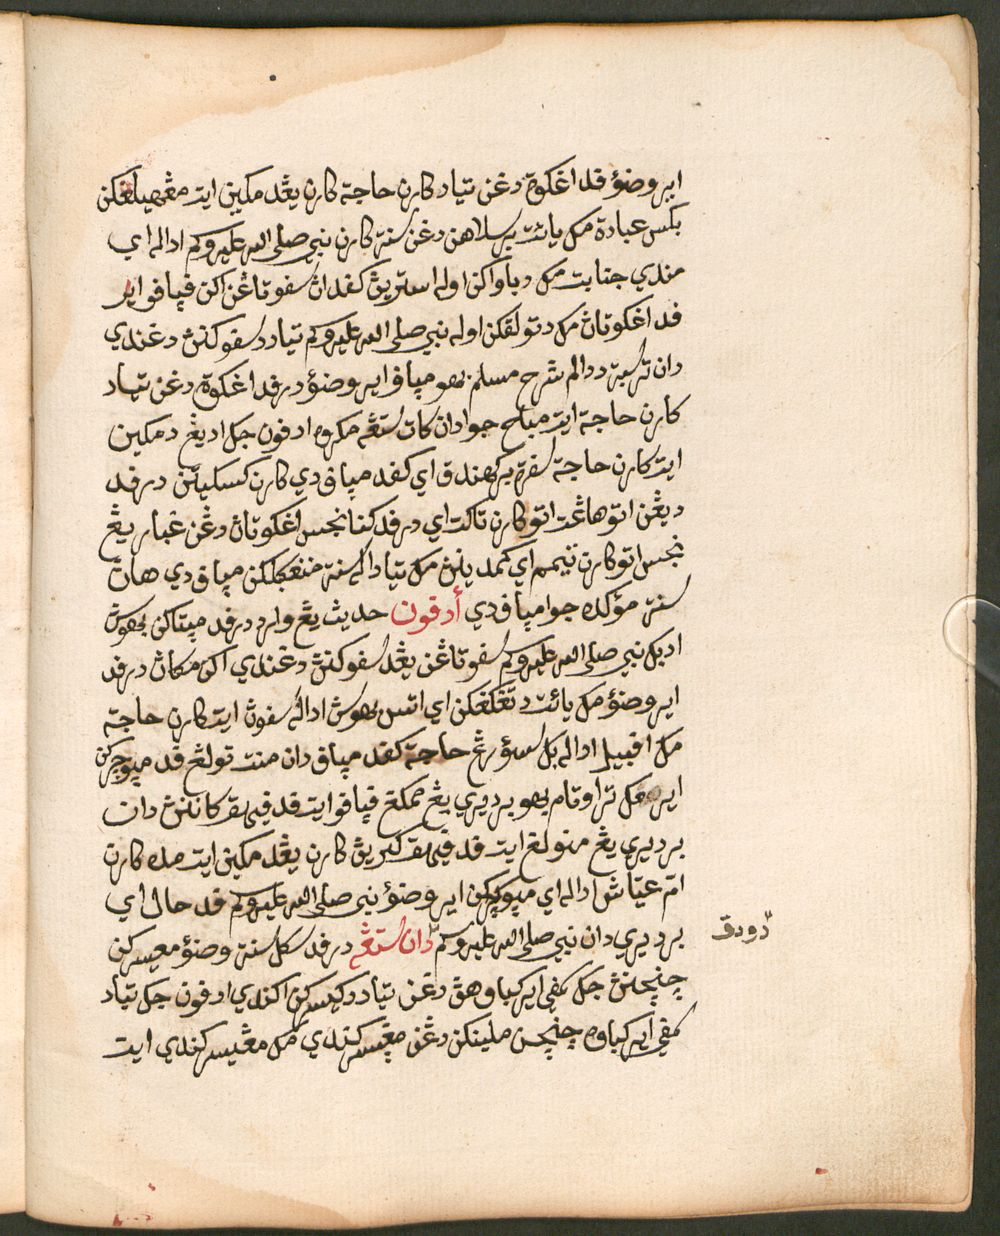 اير وضؤ فد اڠݢوة دڠن تياد كارن حاجة كارن يڠد مكين ايت مڠهيلڠكن
بكس عبادة مك يائت برسلاهن دڠن سنة كارن نبي صلى الله عليه وسلم اداله اي
مندي جنابت مك دباواكن اوله استرين كفدان سفوتاڠن اكن ڤپاڤو اير
فد اڠݢوتان مك دتولقكن اوله نبي صلى الله عليه وسلم تياد دسفوكنن دڠندي
دان ترسبة ددالم شرح مسلم بهو مپاڤو اير وضؤ درفد اڠݢوة دڠن تياد
كارن حاجة ايت مباح جوا دان كات ستڠه مكروه ادفون جك اد يڠ دمكين
ايت كارن حاجة سفرة بركهندق اي كفد مپاڤ دي كارن كسكيتن درفد
ديڠن اتو هاڠت اتو كارن تاكت اي درفد كنا نجس اڠݢوتان دڠن غبار يڠ
نجس اتو كارن تيمم اي كمدينن مك تياداله سنة منڠݢلكن مپاڤ دي هان
سنة مؤكده جوا مپاڤ دي أدفون حديث يڠ وارد درفد ميتاكن بهوسن
ادبل نبي صلى الله عليه وسلم سفوتاڠن يڠد سفوكنن دڠندي اكن مكان درفد
اير وضؤ مك يائت دتڠݢڠكن اي اتس بهوسن اداله سفون ايت كارن حاجة
مك افبيل اداله بݢي سسؤرڠ حاجة كفد مپاڤ دان منت تولڠ فد مپوچركن
اير مك تراوتام بهو برديري يڠ ممݢڠ ڤپاڤو ايت فد فيهق كاننن دان
برديري يڠ منولڠ ايت فد فيهق كيرين كارن يڠد مكين ايت صله كارن
ام عياش اداله اي مپوچركن اير وضؤ نبي صلى الله عليه وسلم فد حال اي
برديري دان نبي صلى الله عليه وسلم دان ستڠه درفد سݢل سنة وضؤ مڠيسركن
دودق
چنچنن جك سمفي اير كباوهن دڠن تياد دكيسركن اكندي ادفون جك تياد
سمفي اير كباوه چنچن ملينكن دڠن مڠيسركندي مك مڠيسركندي ايت